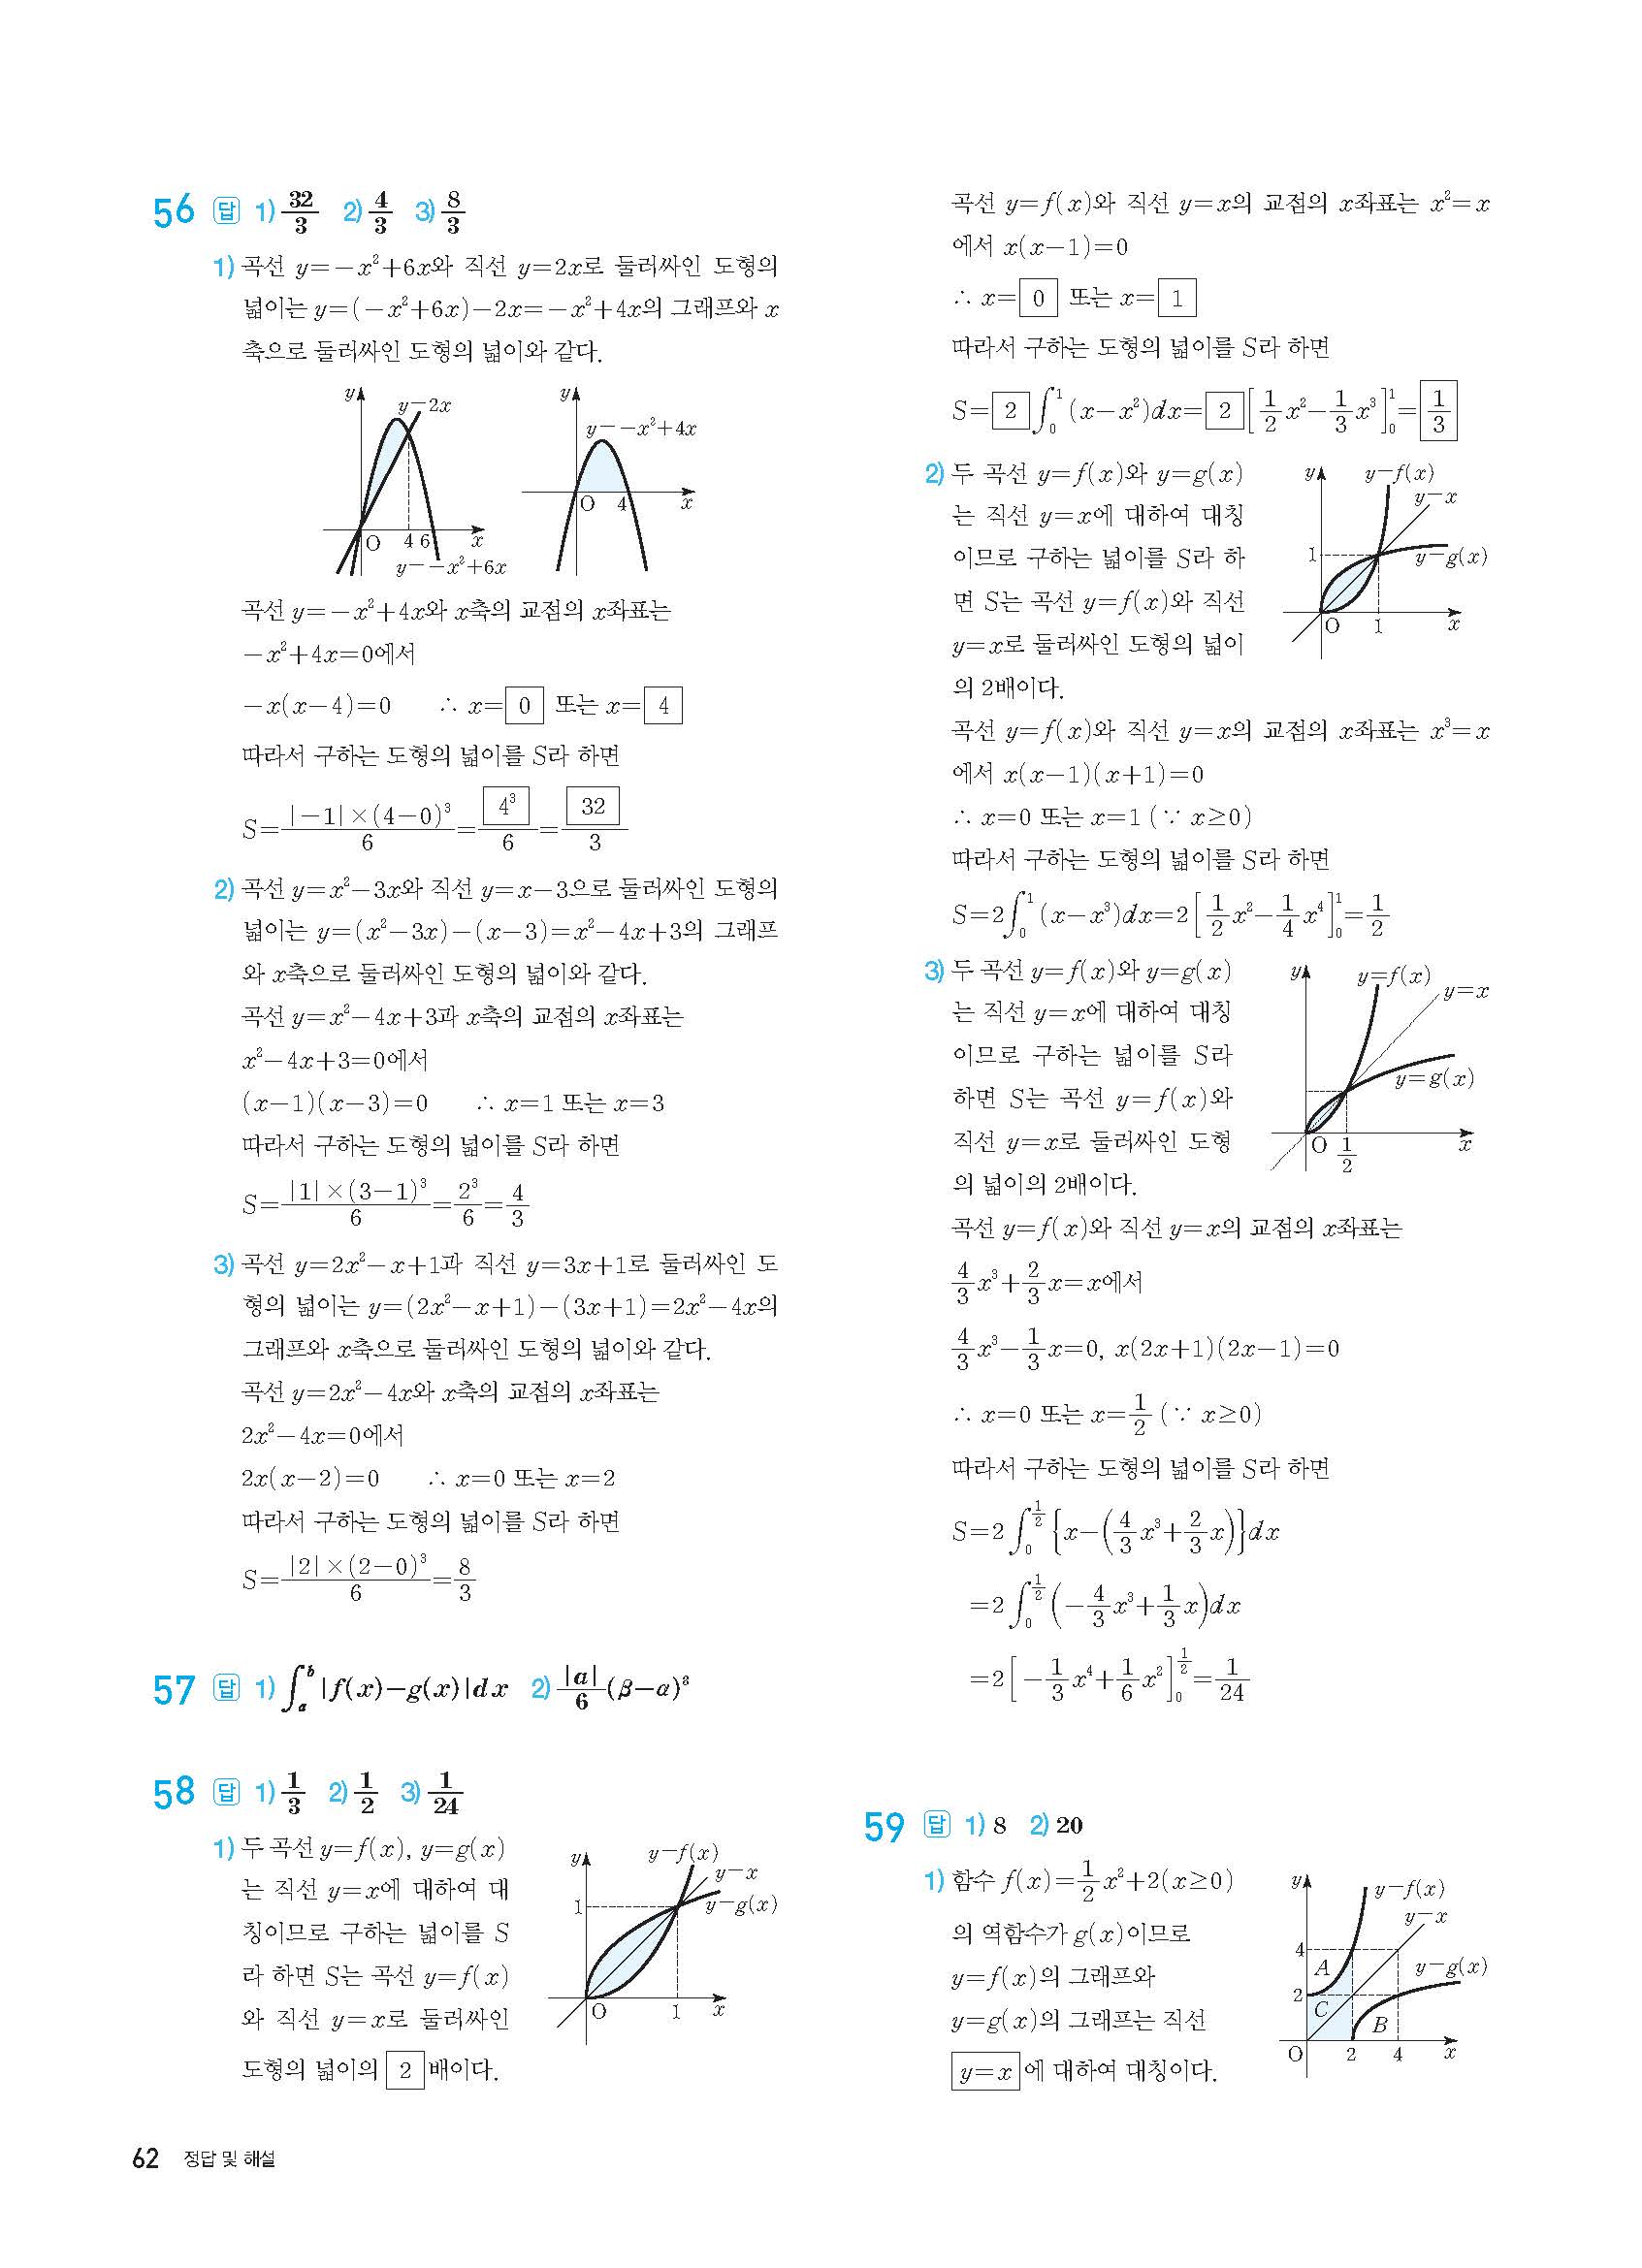 56 답 1) 32/3 2) 4/3 3) 8/3
1) 곡선 y=-x²+6x와 직선 y=2x로 둘러싸인 도형의
넓이는 y=(-x²+6x)-2x=-x²+4x의 그래프와 x
축으로 둘러싸인 도형의 넓이와 같다.
y y=2x O 4 6 x y=-x²+6x
y y=-x²+4x O 4 x
곡선 y=-x²+4x와 x축의 교점의 x좌표는
-x²+4x=0에서
-x(x-4)=0 ∴ x=0 또는 x=4
따라서 구하는 도형의 넓이를 S라 하면
S=|-1|×(4-0)³/6=4³/6=32/3
2) 곡선 y=x²-3x와 직선 y=x-3으로 둘러싸인 도형의
넓이는 y=(x²-3x)-(x-3)=x²-4x+3의 그래프
와 x축으로 둘러싸인 도형의 넓이와 같다.
곡선 y=x²-4x+3과 x축의 교점의 x좌표는
x²-4x+3=0에서
(x-1)(x-3)=0 ∴ x=1 또는 x=3
따라서 구하는 도형의 넓이를 S라 하면
S=|1|×(3-1)³/6=2³/6=4/3
3) 곡선 y=2x²-x+1과 직선 y=3x+1로 둘러싸인 도
형의 넓이는 y=(2x²-x+1)-(3x+1)=2x²-4x의
그래프와 x축으로 둘러싸인 도형의 넓이와 같다.
곡선 y=2x²-4x와 x축의 교점의 x좌표는
2x²-4x=0에서
2x(x-2)=0 ∴ x=0 또는 x=2
따라서 구하는 도형의 넓이를 S라 하면
S=|2|×(2-0)³/6=8/3
57 답 1) ∫ₐᵇ|f(x)-g(x)|dx 2) |a|/6(β-α)³
58 답 1) 1/3 2) 1/2 3) 1/24
1) 두 곡선 y=f(x), y=g(x)
는 직선 y=x에 대하여 대
칭이므로 구하는 넓이를 S
라 하면 S는 곡선 y=f(x)
와 직선 y=x로 둘러싸인
도형의 넓이의 2 배이다.
y y=f(x) y=x y=g(x) 1 O 1 x
곡선 y=f(x)와 직선 y=x의 교점의 x좌표는 x²=x
에서 x(x-1)=0
∴ x=0 또는 x=1
따라서 구하는 도형의 넓이를 S라 하면
S=2∫₀¹(x-x²)dx=2[1/2x²-1/3x³]₀¹=1/3
2) 두 곡선 y=f(x)와 y=g(x)
는 직선 y=x에 대하여 대칭
이므로 구하는 넓이를 S라 하
면 S는 곡선 y=f(x)와 직선
y=x로 둘러싸인 도형의 넓이
의 2배이다.
y y=f(x) y=x 1 y=g(x) O 1 x
곡선 y=f(x)와 직선 y=x의 교점의 x좌표는 x³=x
에서 x(x-1)(x+1)=0
∴ x=0 또는 x=1 (∵ x≥0)
따라서 구하는 도형의 넓이를 S라 하면
S=2∫₀¹(x-x³)dx=2[1/2x²-1/4x⁴]₀¹=1/2
3) 두 곡선 y=f(x)와 y=g(x)
는 직선 y=x에 대하여 대칭
이므로 구하는 넓이를 S라
하면 S는 곡선 y=f(x)와
직선 y=x로 둘러싸인 도형
의 넓이의 2배이다.
y y=f(x) y=x y=g(x) O 1/2 x
곡선 y=f(x)와 직선 y=x의 교점의 x좌표는
4/3x³+2/3x=x에서
4/3x³-1/3x=0, x(2x+1)(2x-1)=0
∴ x=0 또는 x=1/2 (∵ x≥0)
따라서 구하는 도형의 넓이를 S라 하면
S=2∫₀^(1/2){x-(4/3x³+2/3x)}dx
=2∫₀^(1/2)(-4/3x³+1/3x)dx
=2[-1/3x⁴+1/6x²]₀^(1/2)=1/24
59 답 1) 8 2) 20
1) 함수 f(x)=1/2x²+2(x≥0)
의 역함수가 g(x)이므로
y=f(x)의 그래프와
y=g(x)의 그래프는 직선
y=x 에 대하여 대칭이다.
y y=f(x) y=x 4 A y=g(x) 2 C B O 2 4 x
62 정답 및 해설